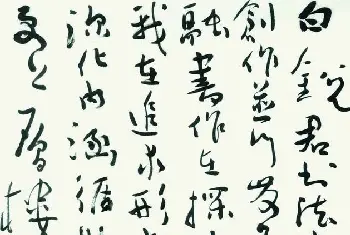 白銳君书法
創作並行
融書作在探
我在追求形
深化内涵循
更上層樓